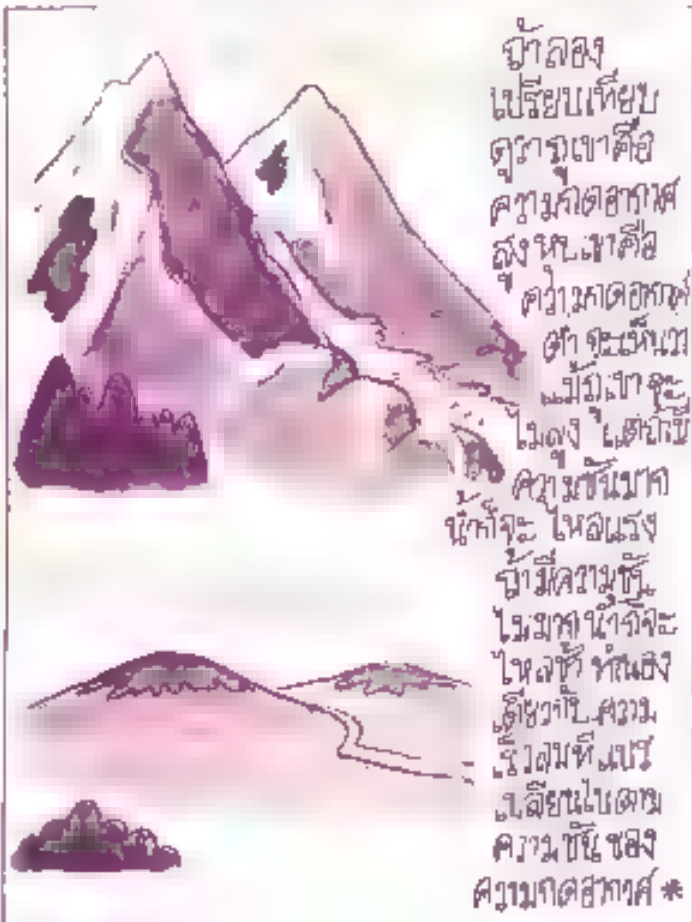 จำลอง
เปรียบเทียบ
ดูว่าภูเขาคือ
ความกดอากาศ
สูง หุบเขาคือ
ความกดอากาศ
ต่ำ จะเห็นว่า
แม้ภูเขาจะ
ไม่สูง แต่ถ้ามี
ความชันมาก
น้ำก็จะไหลแรง
ถ้ามีความชัน
ไม่มากน้ำก็จะ
ไหลช้า ทำนอง
เดียวกับความ
เร็วลมที่แปร
เปลี่ยนไปตาม
ความชันของ
ความกดอากาศ *